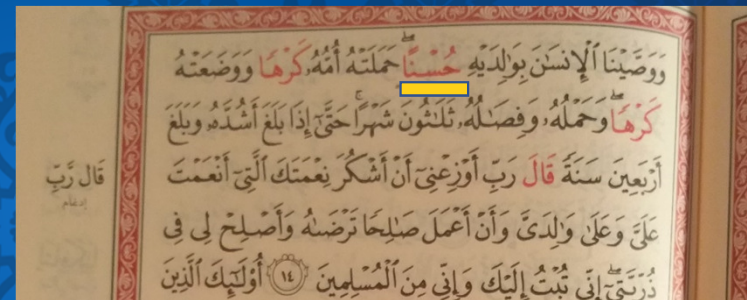 وَوَصَّيْنَا ٱلْإِنسَٰنَ بِوَٰلِدَيْهِ حُسْنًا حَمَلَتْهُ أُمُّهُۥ كَرْهًا وَوَضَعَتْهُ
كَرْهًا وَحَمْلُهُۥ وَفِصَٰلُهُۥ ثَلَٰثُونَ شَهْرًا حَتَّىٰٓ إِذَا بَلَغَ أَشُدَّهُۥ وَبَلَغَ
أَرْبَعِينَ سَنَةً قَالَ رَبِّ أَوْزِعْنِىٓ أَنْ أَشْكُرَ نِعْمَتَكَ ٱلَّتِىٓ أَنْعَمْتَ
قَال رَّبِّ
إدغام
عَلَىَّ وَعَلَىٰ وَٰلِدَىَّ وَأَنْ أَعْمَلَ صَٰلِحًا تَرْضَىٰهُ وَأَصْلِحْ لِى فِى
ذُرِّيَّتِىٓ إِنِّى تُبْتُ إِلَيْكَ وَإِنِّى مِنَ ٱلْمُسْلِمِينَ ١٤ أُوْلَٰٓئِكَ ٱلَّذِينَ